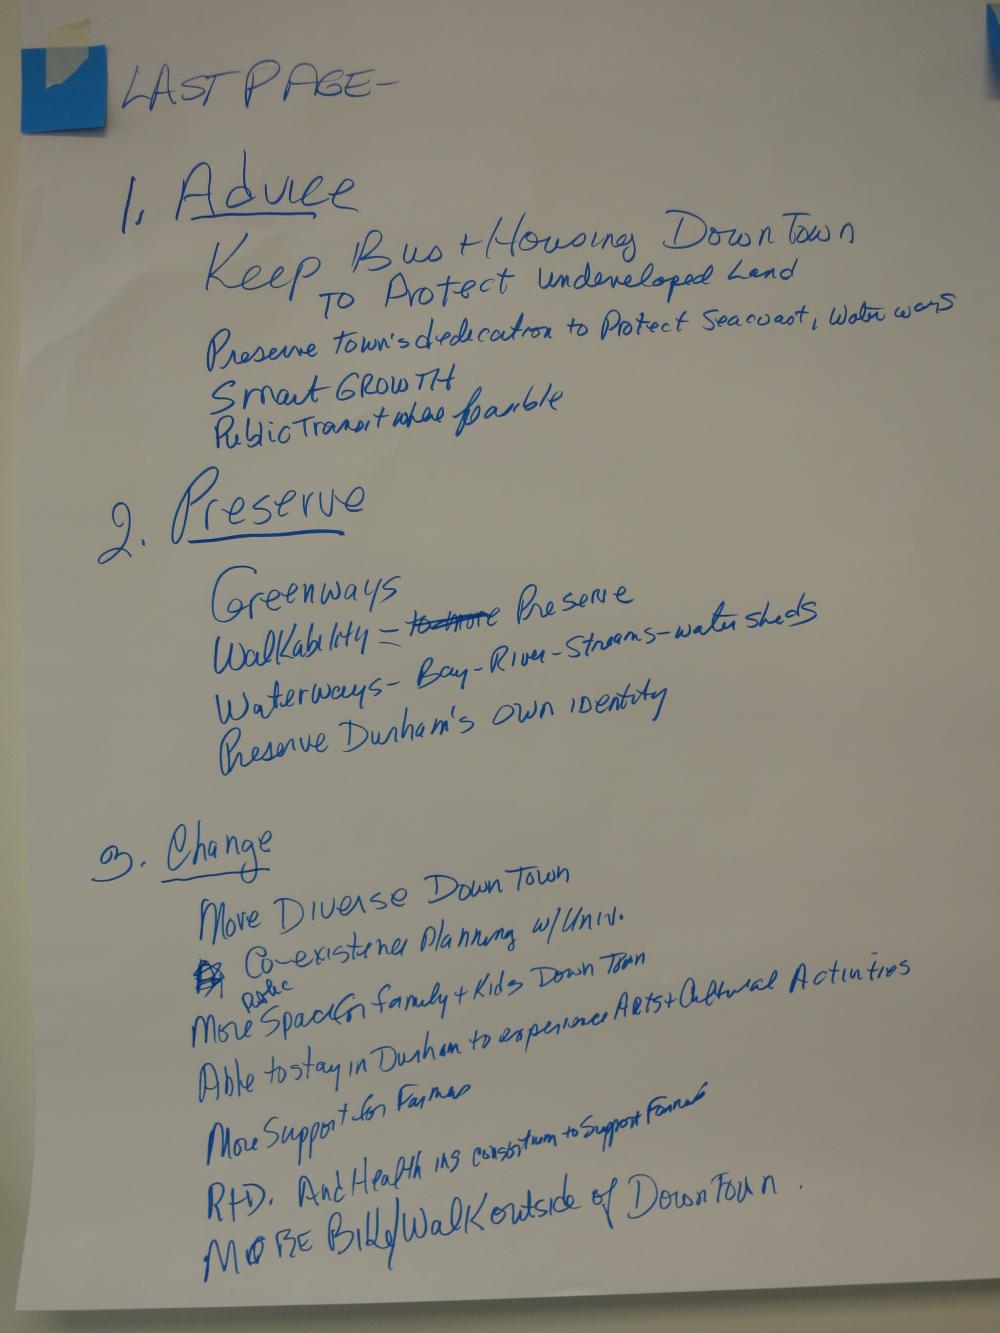 LAST PAGE-
1. Advice
Keep Bus + Housing DownTown
TO Protect undeveloped Land
Preserve town's dedication to Protect Seacoast, Water ways
Smart GROWTH
Public Transit where feasible
2. Preserve
Greenways
Walkability = to more Preserve
Waterways - Bay - River - Streams - watersheds
Preserve Durham's own identity
3. Change
More Diverse DownTown
Co-existence Planning w/Univ.
Public
More Space for family + Kids Down Town
Able to stay in Durham to experience Arts + Cultural Activities
More Support for Farmers
R+D. And Health ins consortium to Support Farmers
MORE Bike/Walk outside of DownTown.